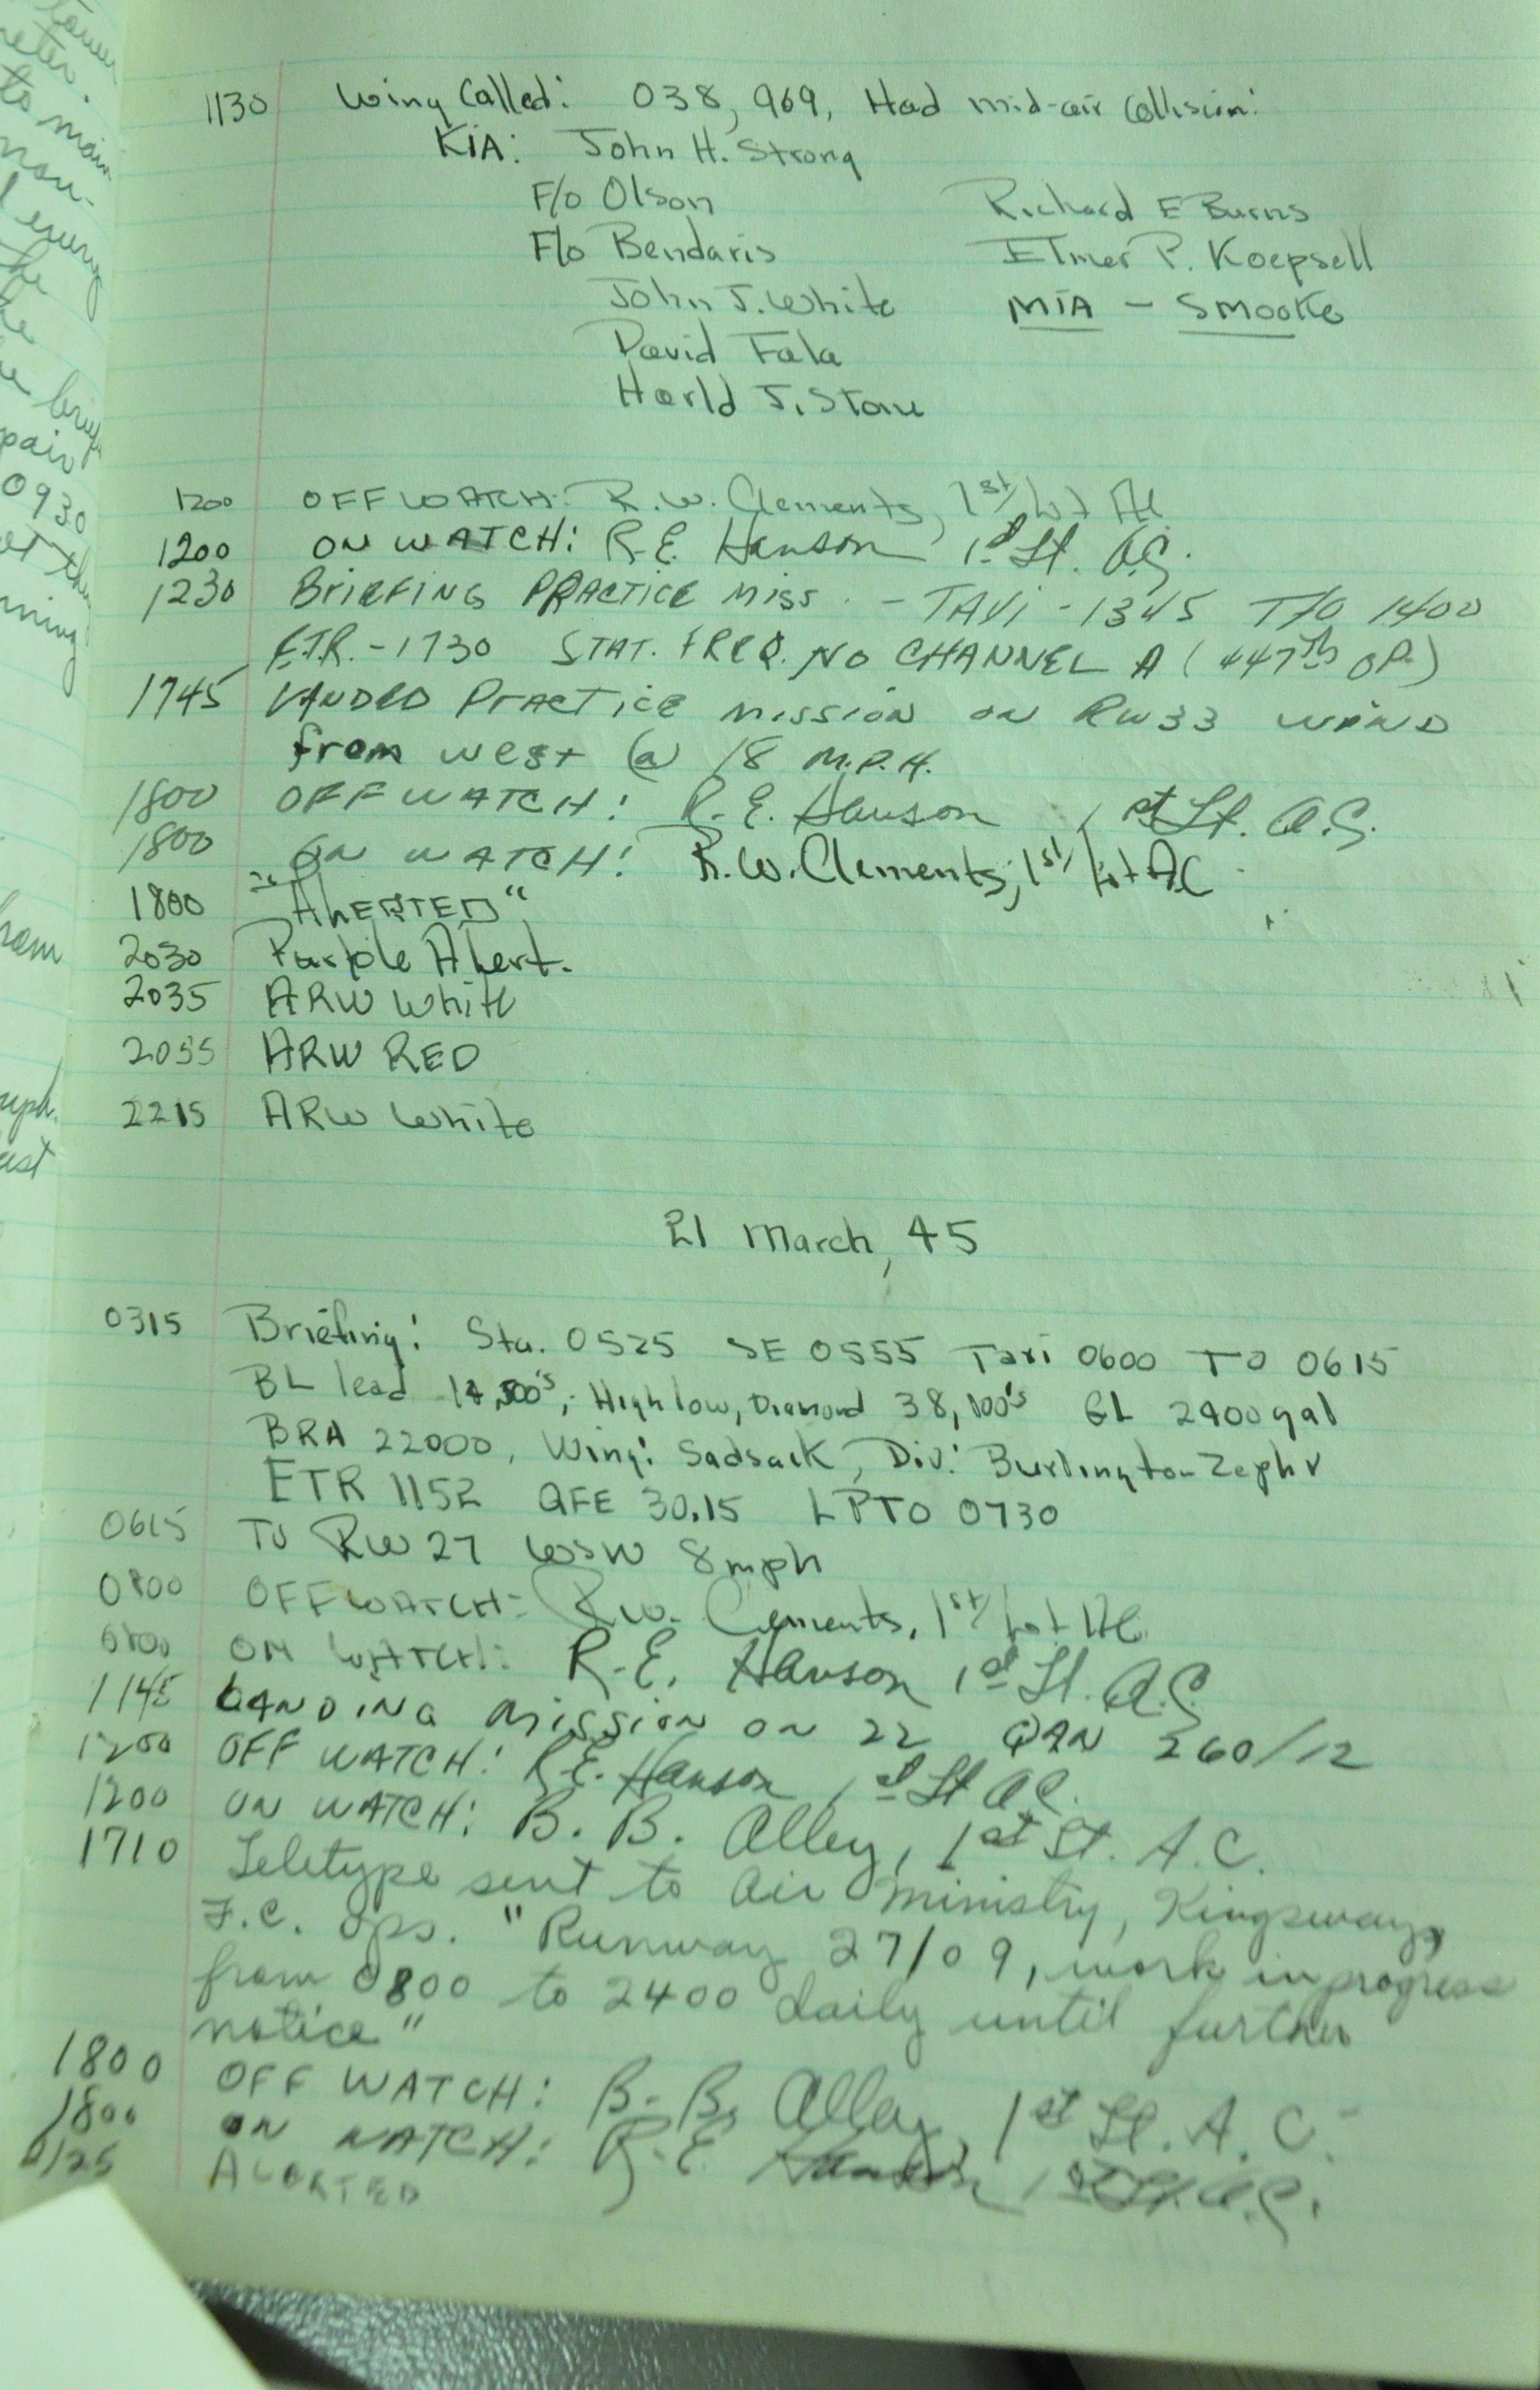 1130 Wing Called: 038, 969, Had mid-air Collision:
KIA: John H. Strong
F/o Olson Richard E Burns
F/o Bendaris Elmer P. Koepsell
John J. White MIA - Smooke
David Fala
Harld J. Stone
1200 OFF WATCH: R.W. Clements, 1st/Lt AC
1200 ON WATCH: R.E. Hanson 1st Lt. A.C.
1230 BRIEFING PRACTICE MISS. - TAXI - 1345 T/O 1400
E.T.R. - 1730 STAT. FREQ. NO CHANNEL A (447th OP.)
1745 LANDED PRACTICE MISSION ON RW 33 WIND
from west @ 18 M.P.H.
1800 OFF WATCH: R.E. Hanson 1st Lt. A.C.
1800 ON WATCH: R.W. Clements, 1st/Lt AC
1800 "ALERTED"
2030 Purple Alert.
2035 ARW White
2055 ARW RED
2215 ARW White
21 March, 45
0315 Briefing: Sta. 0525 SE 0555 Taxi 0600 TO 0615
BL lead 500's; High low, Diamond 38, 100's GL 2400 gal
BRA 22000, Wing: Sadsack, Div: Burlington Zephr
ETR 1152 QFE 30.15 LPTO 0730
0615 TO RW 27 WSW 8 mph
0800 OFF WATCH: R.W. Clements, 1st/Lt AC
0800 ON WATCH: R.E. Hanson 1st Lt. A.C.
1145 LANDING MISSION ON 22 QAN 260/12
1200 OFF WATCH: R.E. Hanson 1st Lt AC.
1200 ON WATCH: B. B. Alley, 1st Lt. A.C.
1710 Teletype sent to Air Ministry, Kingsway,
F.C. Ops. "Runway 27/09, work in progress
from 0800 to 2400 daily until further
notice"
1800 OFF WATCH: B. B. Alley, 1st Lt. A.C.
1800 ON WATCH: R.E. Hanson 1st Lt. A.C.
ALERTED